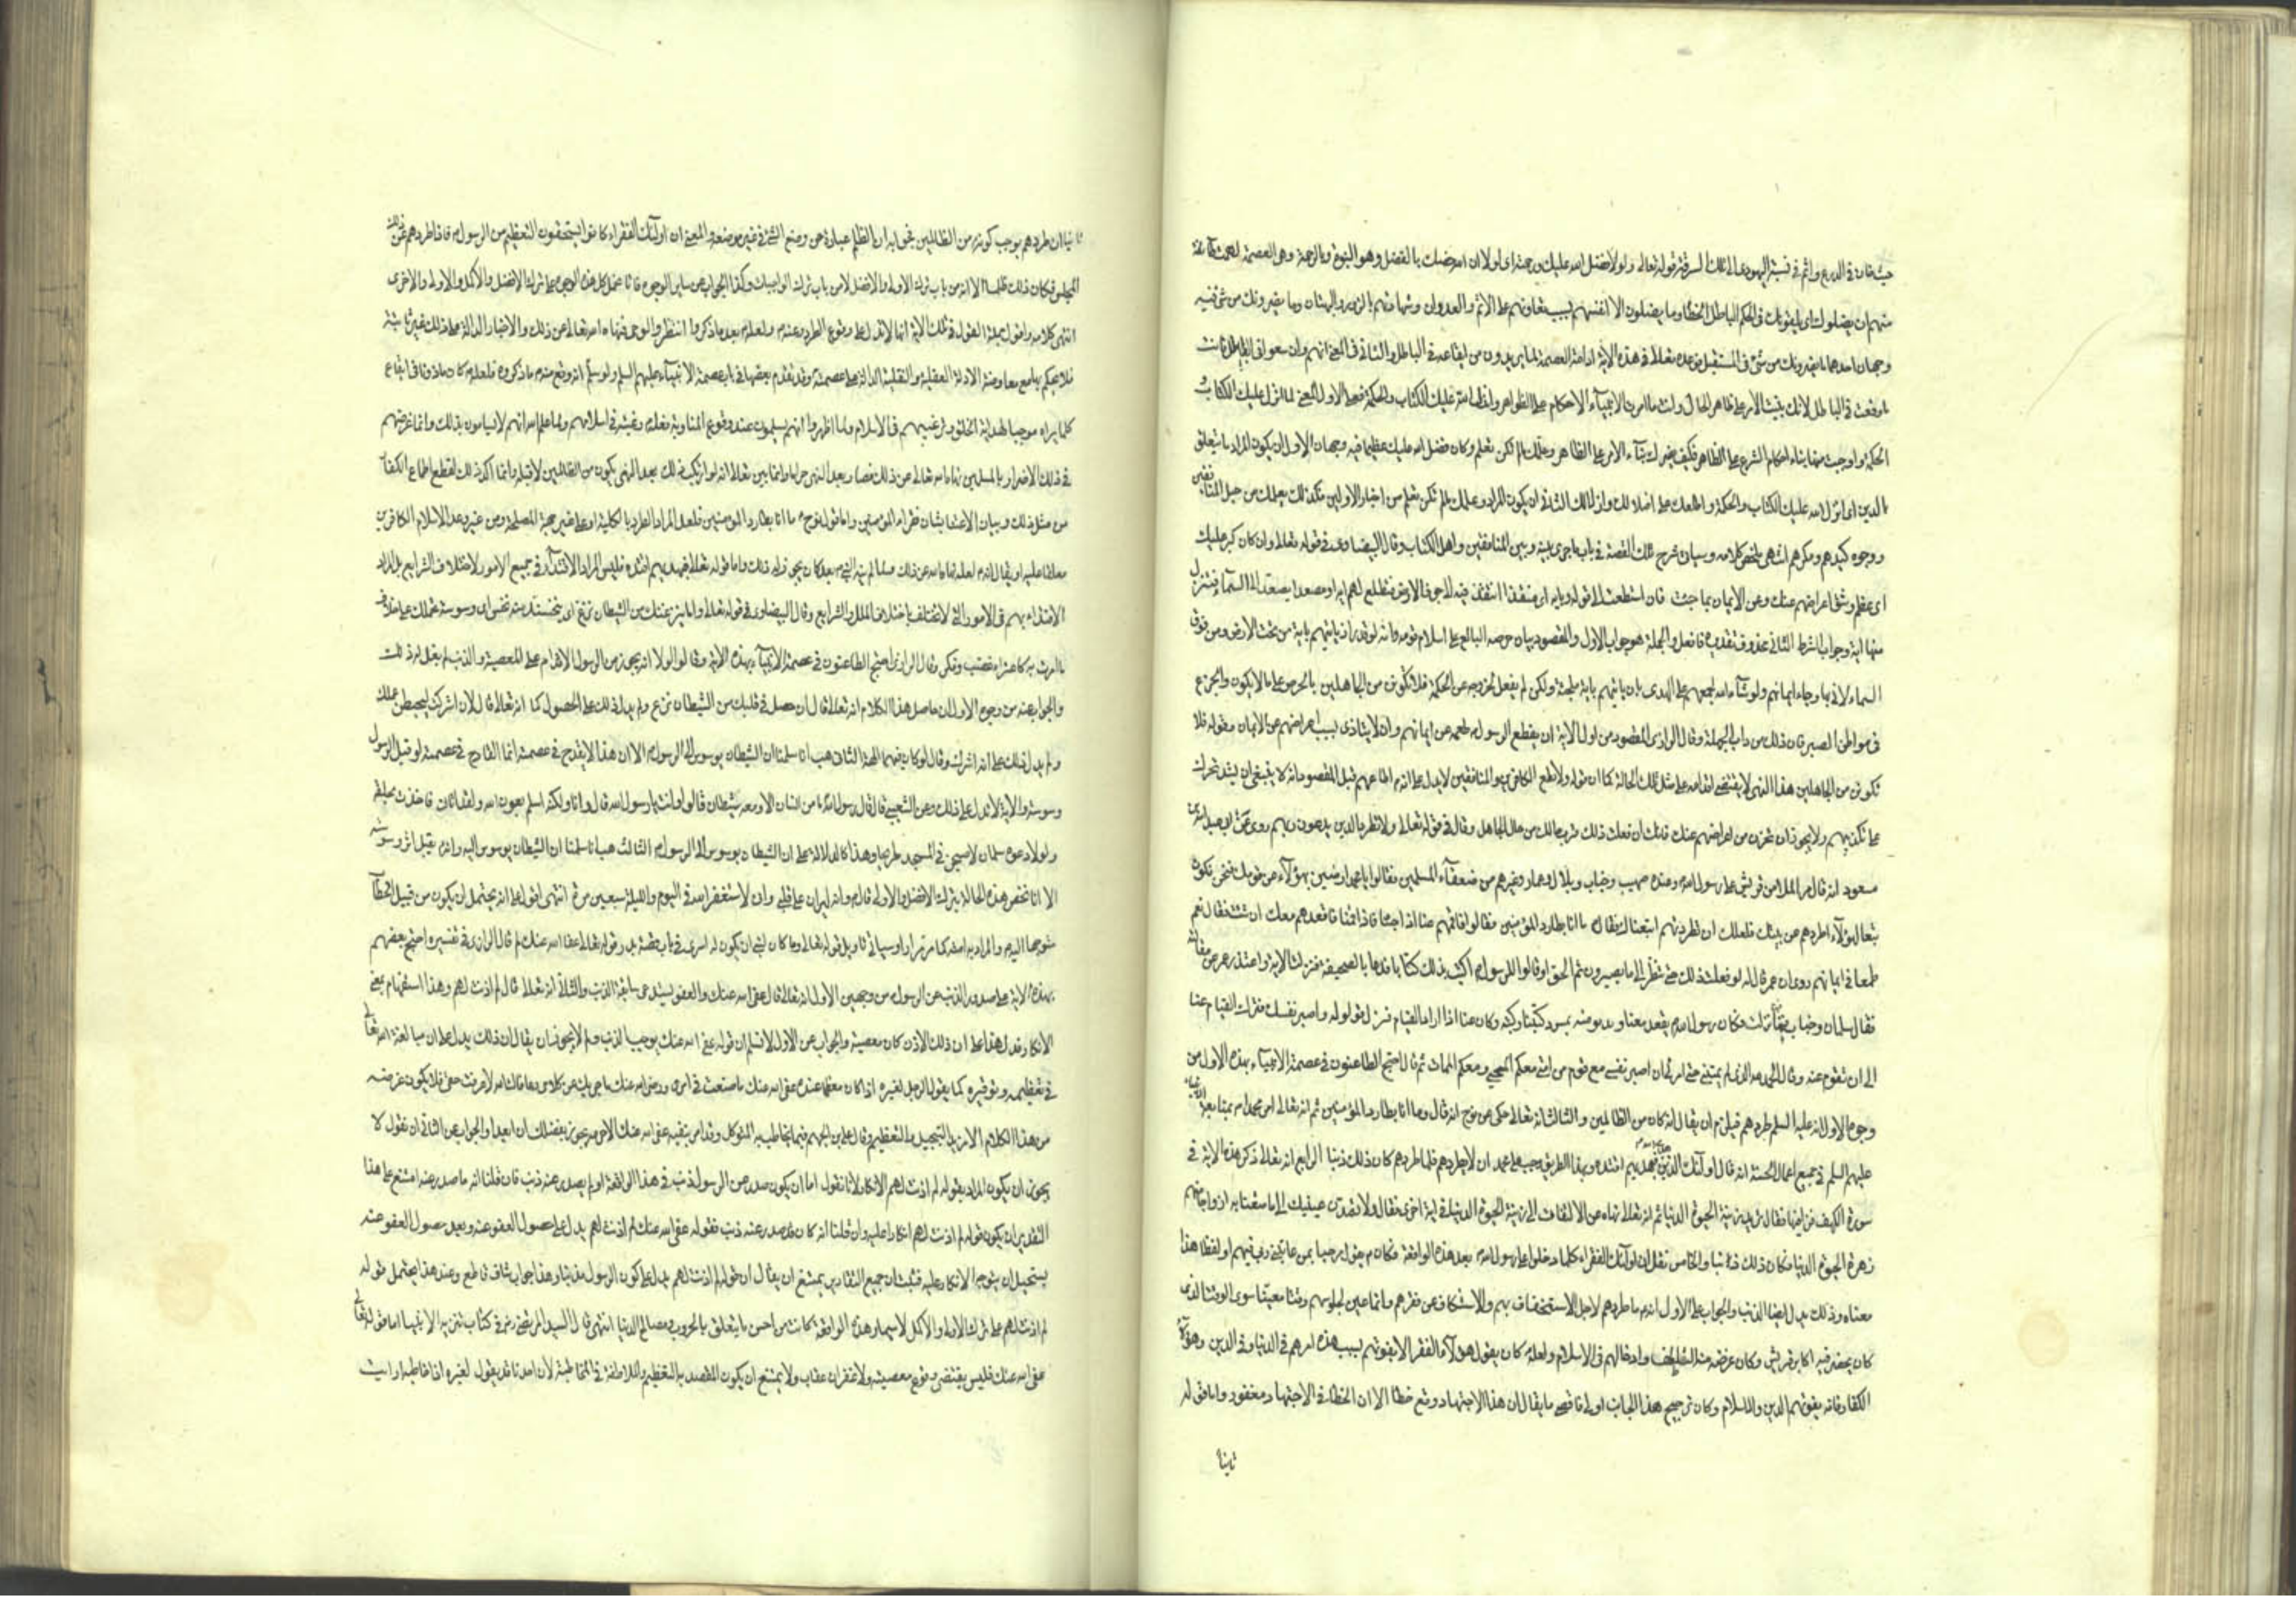 حيث خان في الدرع واثم في نسبة اليهودي الى ذلك السرقة قوله تعالى ولولا فضل الله عليك ورحمته اى لولا ان الله خصك بالفضل وهو النبوة وبالرحمة وهي العصمة لهمت طائفة
منهم ان يضلوك اى يلقونك في الحكم الباطل الخطأ وما يضلون الا انفسهم بسبب تعاونهم على الاثم والعدوان وشهادتهم بالزور والبهتان وما يضرونك من شئ فيه
وجهان احدهما ما يضرونك من شئ في المستقبل فوعده تعالى في هذه الاية ادامة العصمة لما يريدون من ايقاعه في الباطل والثاني ان المعنى انهم وان سعوا في القائك فانت
ما وقعت في الباطل لانك بنيت الامر على ظاهر الحال وانت ما امرت الا ببناء الاحكام على الظواهر ولفظ انزل الله عليك الكتاب والحكمة فعلى الاول المعنى لما انزل عليك الكتاب و
الحكمة واوجب فيهما بناء احكام الشرع على الظاهر فكيف يضرك بناء الامر على الظاهر وعلمك ما لم تكن تعلم وكان فضل الله عليك عظيما فيه وجهان الاول ان يكون المراد ما يتعلق
بالدين اى انزل الله عليك الكتاب والحكمة واطلعك على اسرارهما الثاني ان يكون المراد وعلمك ما لم تكن تعلم من اخبار الاولين فكذلك يعلمك من حيل المنافقين
ووجوه كيدهم ومكرهم انتهى ملخص كلامه وسيأتي شرح تلك القصة في باب ما جرى بينه وبين المنافقين واهل الكتاب وقال البيضاوي في قوله تعالى وان كان كبر عليك
اى عظم وشق اعراضهم عنك وعن الايمان بما جئت فان استطعت الى قوله باية اى منفذا تنفذ فيه الى جوف الارض فتطلع لهم اية او مصعدا يصعد الى السماء فتنزل
منها اية وجواب الشرط الثاني محذوف تقديره فافعل والجملة هو جواب الاول والمقصود بيان حرصه البالغ على اسلام قومه وانه لو قدر ان ياتيهم باية من تحت الارض ومن فوق
السماء لاتى بها رجاء ايمانهم ولو شاء الله لجمعهم على الهدى بان ياتيهم باية ملجئة ولكن لم يفعل لخروجه عن الحكمة فلا تكونن من الجاهلين بالحرص على ما لا يكون والجزع
في مواطن الصبر فان ذلك من داب الجهلة وقال الرازي المقصود من اول الاية ان يقطع الرسول طمعه عن ايمانهم وان لا يتاذى بسبب اعراضهم عن الايمان وقوله فلا
تكونن من الجاهلين هذا النهي لا يقتضى اقدامه على مثل تلك الحالة كما ان قوله ولا تطع الكافرين والمنافقين لا يدل على انه اطاعهم قبل المقصود انه لا ينبغي ان يشتد تحزنك
على تكذيبهم ولا يجوز ان تحزن من اعراضهم عنك فانك ان فعلت ذلك قرب حالك من حال الجاهل وقال في قوله تعالى ولا تطرد الذين يدعون ربهم روى عن عبد الله بن
مسعود انه قال مر الملا من قريش على رسول الله وعنده صهيب وخباب وبلال وعمار وغيرهم من ضعفاء المسلمين فقالوا يا محمد ارضيت بهؤلاء عن قومك فنحن نكون
تبعا لهؤلاء اطردهم عن نفسك فلعلك ان طردتهم اتبعناك فقال ما انا بطارد المؤمنين فقالوا فاقمهم عنا اذا جئنا فاذا قمنا فاقعدهم معك ان شئت فقال نعم
طمعا في ايمانهم وروى ان عمر قال له لو فعلت ذلك حتى ننظر الى ما يصيرون ثم الحوا وقالوا للرسول اكتب بذلك كتابا فدعا بالصحيفة فنزلت الاية واعتذر عمر عن مقالته
فقال سلمان وخباب فينا نزلت فكان رسول الله يقعد معنا ويدنو منه تمس ركبتنا ركبته وكان عنا اذا اراد القيام فنزل قوله واصبر نفسك فترك القيام عنا
الى ان نقوم عنه وقال الحمد لله الذي لم يمتني حتى امرني ان اصبر نفسي مع قوم من امتي معكم المحيى ومعكم الممات ثم قال احتج الطاعنون في عصمة الانبياء بهذه الاية من
وجوه الاول انه عليه السلم طردهم فيلزم ان يقال انه كان من الظالمين والثالث انه تعالى حكى عن نوح انه قال وما انا بطارد المؤمنين ثم انه تعالى امر محمدا بمتابعة الانبياء
عليهم السلم في جميع اعمال الحسنة انه قال اولئك الذين هدى الله فبهديهم اقتده وبهذا الطريق وجب على محمد ان لا يطردهم فلما طردهم كان ذلك ذنبا الرابع انه تعالى ذكر هذه الاية في
سورة الكهف فزاد فيها فقال تريد زينة الحيوة الدنيا ثم انه تعالى نهاه عن الالتفات الى زينة الحيوة الدنيا في اية اخرى فقال ولا تمدن عينيك الى ما متعنا به ازواجا منهم
زهرة الحيوة الدنيا فكان ذلك ذنبا والخامس نقل ان اولئك الفقراء كلما دخلوا على رسول الله بعد هذه الواقعة فكان يقول مرحبا بمن عاتبني ربي فيهم او لفظا هذا
معناه وذلك يدل ايضا على الذنب والجواب على الاول انه ما طردهم لاجل الاستخفاف بهم والاستنكاف من فقرهم وانما عين لجلوسهم وقتا معينا سوى الوقت الذي
كان يحضر فيه اكابر قريش وكان غرضه منه التلطف وادخالهم في الاسلام ولعله كان يقول هؤلاء الفقراء لا يفوتهم بسبب هذه امر مهم في الدنيا وفي الدين وهؤلاء
الكفار فانه يفوتهم الدين والاسلام وكان ترجيح هذا الجانب اولى فاقصى ما يقال ان هذا الاجتهاد وقع خطا الا ان الخطأ في الاجتهاد مغفور واما قوله
ثانيا
ثانيا ان طردهم يوجب كونه من الظالمين فجوابه ان الظلم عبارة عن وضع الشئ في غير موضعه والمعنى ان اولئك الفقراء كانوا يستحقون التعظيم من الرسول فاذا طردهم عن ذلك
المجلس فكان ذلك ظلما الا انه من باب ترك الاولى والافضل لا من باب ترك الواجبات وكذا الجواب عن ساير الوجوه فانا نحمل كل هذه الوجوه على ترك الافضل والاكمل والاولى والاحرى
انتهى كلامه واقول جملة القول في تلك الاية انها لا تدل على وقوع الطرد عنه ولعله بعد ما ذكروا انتظر الوحي فنهاه الله تعالى عن ذلك والاخبار الدالة على ذلك غير ثابتة
فلا يحكم بها مع معارضة الادلة العقلية والنقلية الدالة على عصمته وقد تقدم بعضها في باب عصمة الانبياء عليهم السلم ولو سلم انه وقع منه ما ذكروه فلعله كان ماذونا في ايقاع
كلما يراه موجبا لهداية الخلق وترغيبهم في الاسلام ولما اظهروا انهم يسلمون عند وقوع المناوبة فعله رغبة في اسلامهم ولما علم الله انهم لا يسلمون بذلك وانما غرضهم
في ذلك الاضرار بالمسلمين نهاه الله تعالى عن ذلك فصار بعد النهى حراما وانما بين تعالى انه لو ارتكب ذلك بعد النهى يكون من الظالمين لا قبله وانما اكد ذلك لقطع اطماع الكفار
من مثل ذلك وبيان الاعتناء بشان فقراء المؤمنين واما قول نوح ما انا بطارد المؤمنين فلعل المراد الطرد بالكلية او على غير جهة المصلحة ومن غير وعد الاسلام الكافرين
معلقا عليه او يقال انه لعله نهاه الله عن ذلك ولما لم ينه النبي بعد كان يجوز له ذلك واما قوله تعالى فبهديهم اقتده فليس المراد الاقتداء في جميع الامور لاختلاف الشرايع بل المراد
الاقتداء بهم في الامور التي لا تختلف باختلاف الملل والشرايع وقال البيضاوي في قوله تعالى واما ينزغنك من الشيطان نزغ اى ينخسنك منه نخس اى وسوسة تحملك على خلاف
ما امرت به كاعتراء غضب وفكر وقال الرازي احتج الطاعنون في عصمة الانبياء بهذه الاية وقالوا لولا انه يجوز من الرسول الاقدام على المعصية والذنب لم يقل له ذلك
والجواب عنه من وجوه الاول ان حاصل هذا الكلام انه تعالى قال ان حصل في قلبك من الشيطان نزغ ولم يدل ذلك على الحصول كما انه تعالى قال لئن اشركت ليحبطن عملك
ولم يدل ذلك على انه اشرك وقال لو كان فيهما الهة الثاني هب انا سلمنا ان الشيطان يوسوس الى الرسول الا ان هذا لا يقدح في عصمته انما القادح في عصمته لو قبل الرسول
وسوسته والاية لا تدل على ذلك وعن الشعبي قال قال رسول الله ما من انسان الا ومعه شيطان قالوا وانت يا رسول الله قال وانا ولكنه اسلم بعون الله ولقد اتاني فاخذت بحلقه
ولولا دعوة سليمان لاصبح في المسجد طريحا وهذا كالدلالة على ان الشيطان يوسوس الى الرسول الثالث هب انا سلمنا ان الشيطان يوسوس اليه وانه يقبل اثر وسوسته
الا انا نخص هذه الحالة بترك الافضل والاولى قال وانه ليران على قلبي وانى لاستغفر الله في اليوم والليلة سبعين مرة انتهى اقول على انه يحتمل ان يكون من قبيل الخطاب
متوجها اليه والمراد به امته كما مر مرارا وسياتي تاويل قوله تعالى وما كان لنبي ان يكون له اسرى في باب قصة بدر وقوله تعالى عفا الله عنك لم قال الرازي في تفسيره احتج بعضهم
بهذه الاية على صدور الذنب عن الرسول من وجهين الاول انه تعالى قال عفا الله عنك والعفو يستدعى سابقة الذنب والثاني انه تعالى قال لم اذنت لهم وهذا استفهام بمعنى
الانكار فدل هذا على ان ذلك الاذن كان معصية والجواب عن الاول لا نسلم ان قوله عفا الله عنك يوجب الذنب ولم لا يجوز ان يقال ان ذلك يدل على ان مبالغة الله تعالى
في تعظيمه وتوقيره كما يقول الرجل لغيره اذا كان معظما عنده عفى الله عنك ما صنعت في امرى ورضى الله عنك ما جوابك عن كلامي وعافاك الله لا عرفت حقى فلا يكون غرضه
من هذا الكلام الا مزيد التبجيل والتعظيم وقال على بن الجهم فيما يخاطب به المتوكل وقد امر بنفيه عفى الله عنك الا حرمة تجود بفضلك ان ابعدا والجواب عن الثاني ان نقول لا
يجوز ان يكون المراد بقوله لم اذنت لهم الانكار لانا نقول اما ان يكون صدر عن الرسول ذنب في هذا الواقعة او لم يصدر عنه ذنب فان قلنا انه ما صدر عنه امتنع على هذا
التقدير ان يكون قوله لم اذنت لهم انكارا عليه وان قلنا انه كان قد صدر عنه ذنب فقوله عفى الله عنك لم اذنت لهم يدل على حصول العفو عنه وبعد حصول العفو عنه
يستحيل ان يتوجه الانكار عليه فثبت ان جميع التقادير يمتنع ان يقال ان قوله لم اذنت لهم يدل على كون الرسول مذنبا وهذا جواب شاف قاطع وعند هذا يحتمل قوله
لم اذنت لهم على ترك الاولى والاكمل لا سيما وهذه الواقعة كانت من احسن ما يتعلق بالحروب ومصالح الدنيا انتهى قال السيد المرتضى رض في كتاب تنزيه الانبياء اما قوله تعالى
عفى الله عنك فليس يقتضى وقوع معصية ولا غفران عقاب ولا يمتنع ان يكون المقصد به التعظيم والملاطفة في المخاطبة لان احدنا قد يقول لغيره اذا خاطبه ارايت